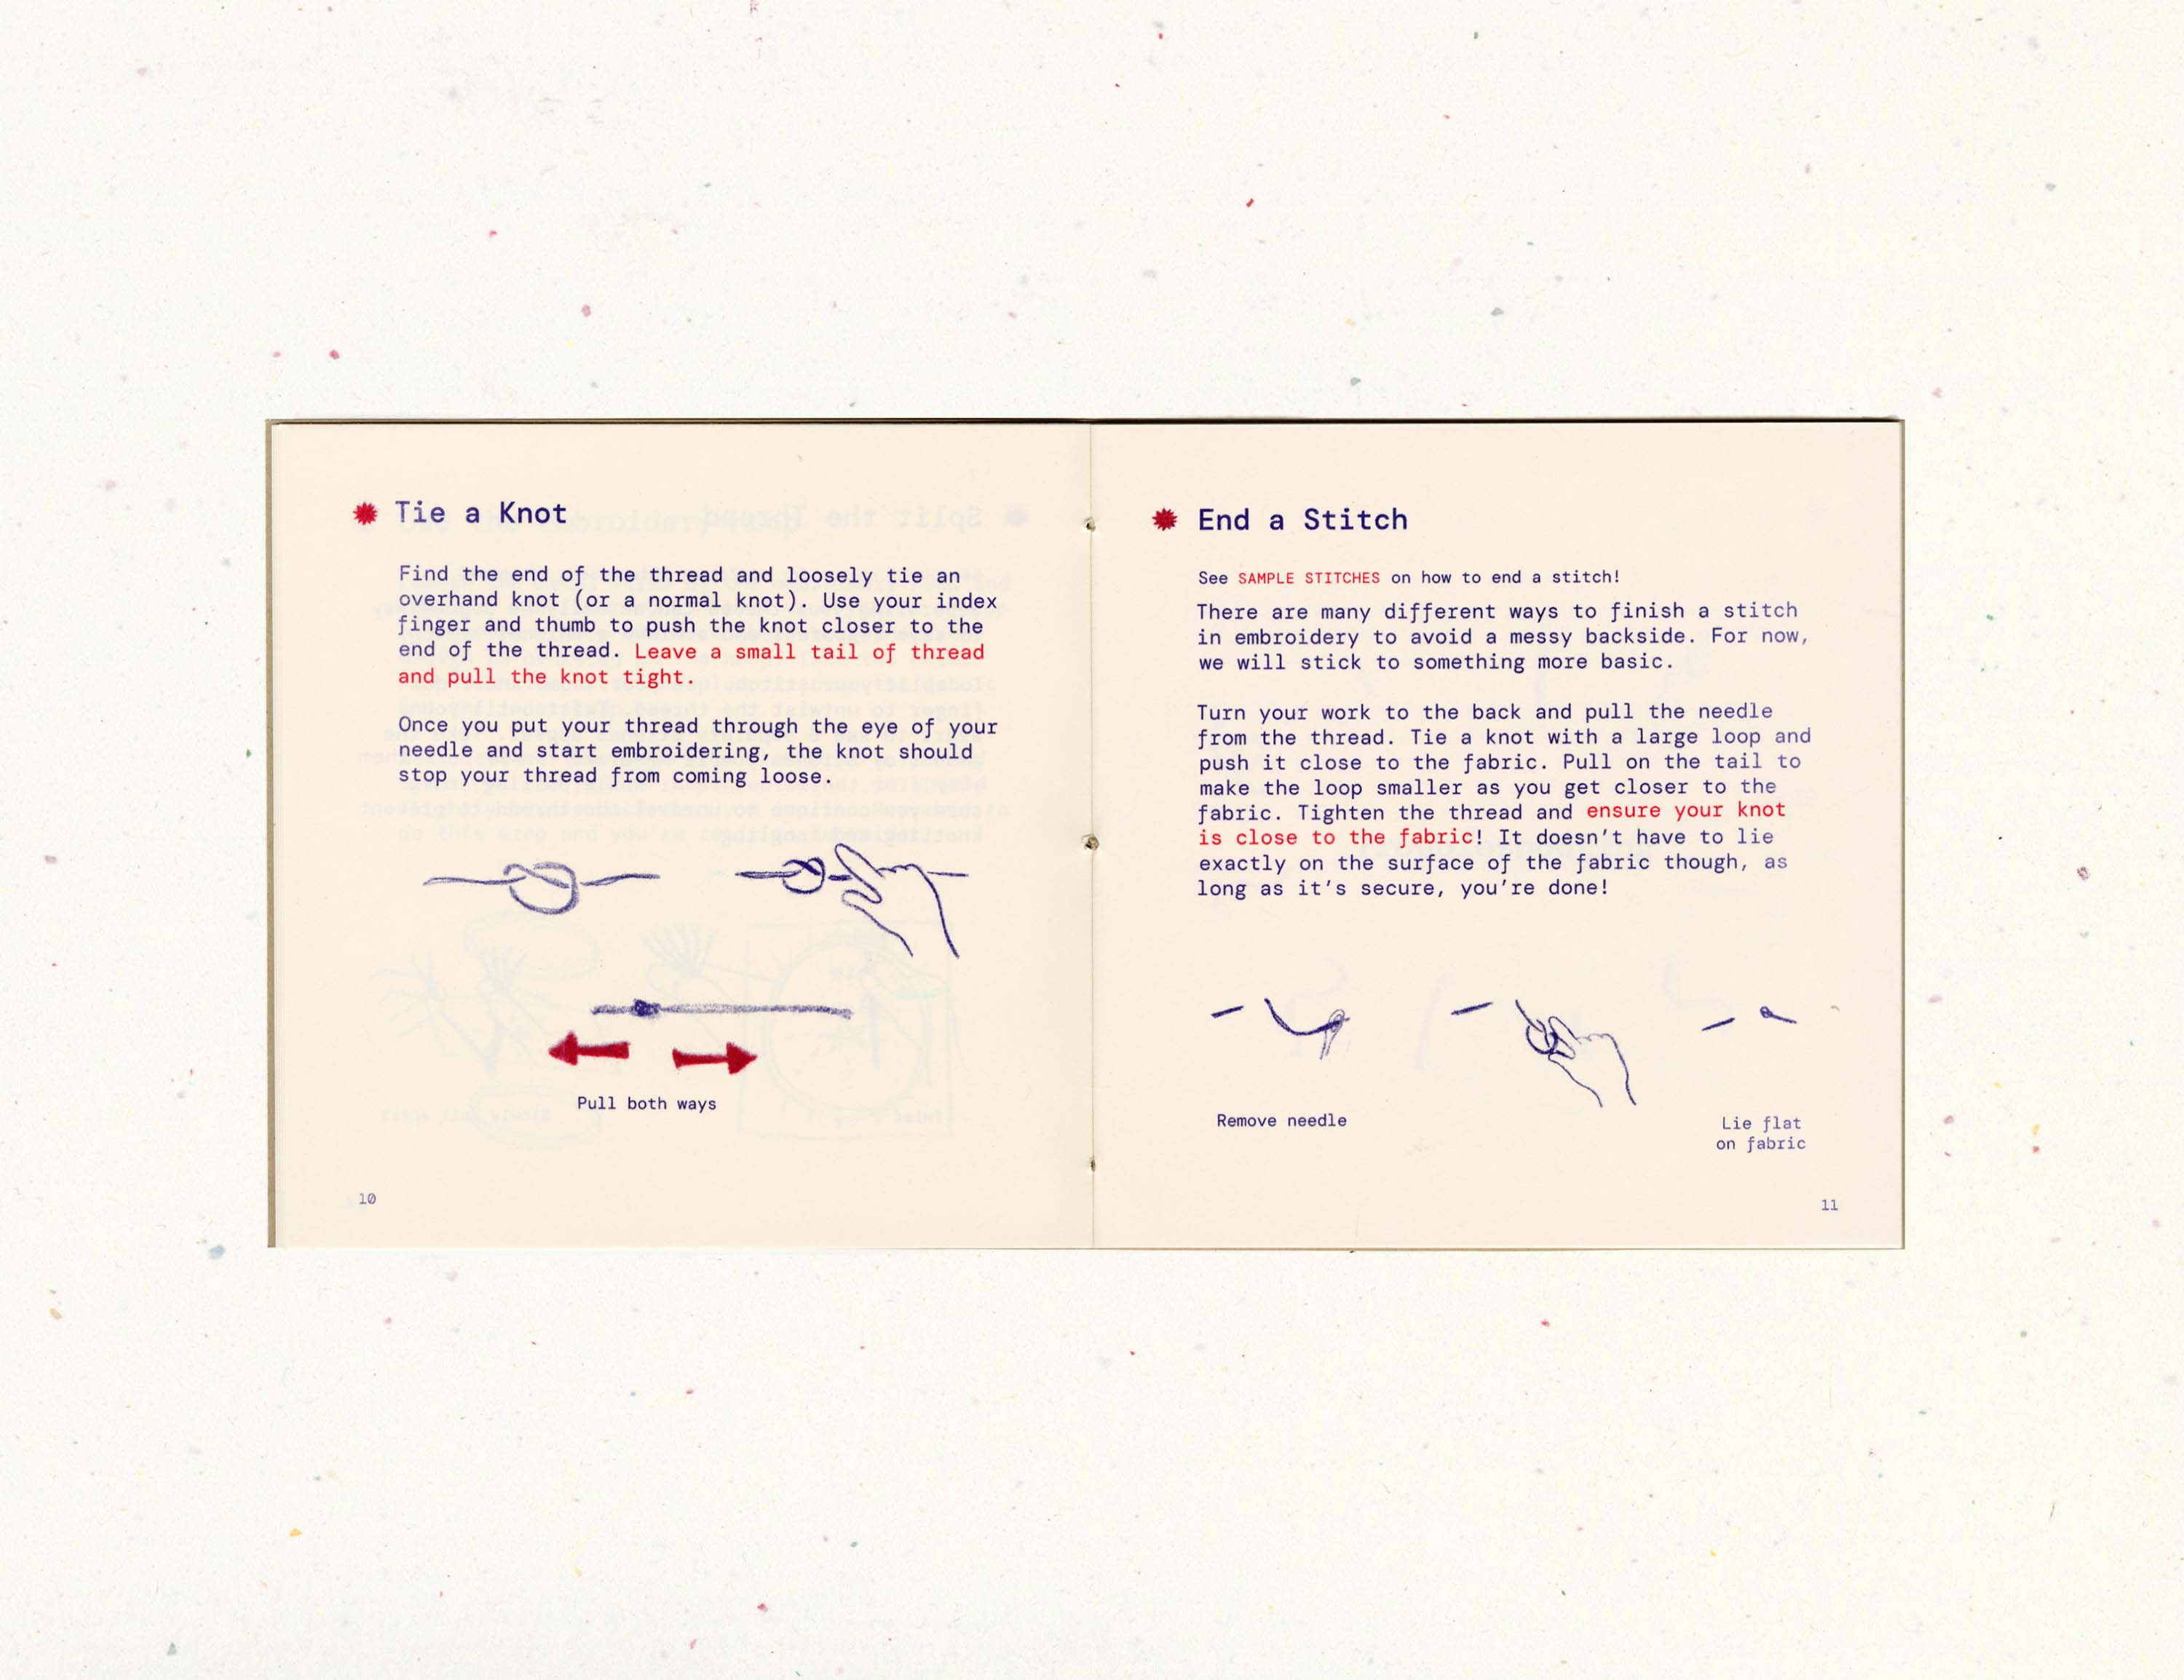 Tie a Knot
Find the end of the thread and loosely tie an
overhand knot (or a normal knot). Use your index
finger and thumb to push the knot closer to the
end of the thread. Leave a small tail of thread
and pull the knot tight.
Once you put your thread through the eye of your
needle and start embroidering, the knot should
stop your thread from coming loose.
Pull both ways
10
End a Stitch
See SAMPLE STITCHES on how to end a stitch!
There are many different ways to finish a stitch
in embroidery to avoid a messy backside. For now,
we will stick to something more basic.
Turn your work to the back and pull the needle
from the thread. Tie a knot with a large loop and
push it close to the fabric. Pull on the tail to
make the loop smaller as you get closer to the
fabric. Tighten the thread and ensure your knot
is close to the fabric! It doesn't have to lie
exactly on the surface of the fabric though, as
long as it's secure, you're done!
Remove needle
Lie flat
on fabric
11